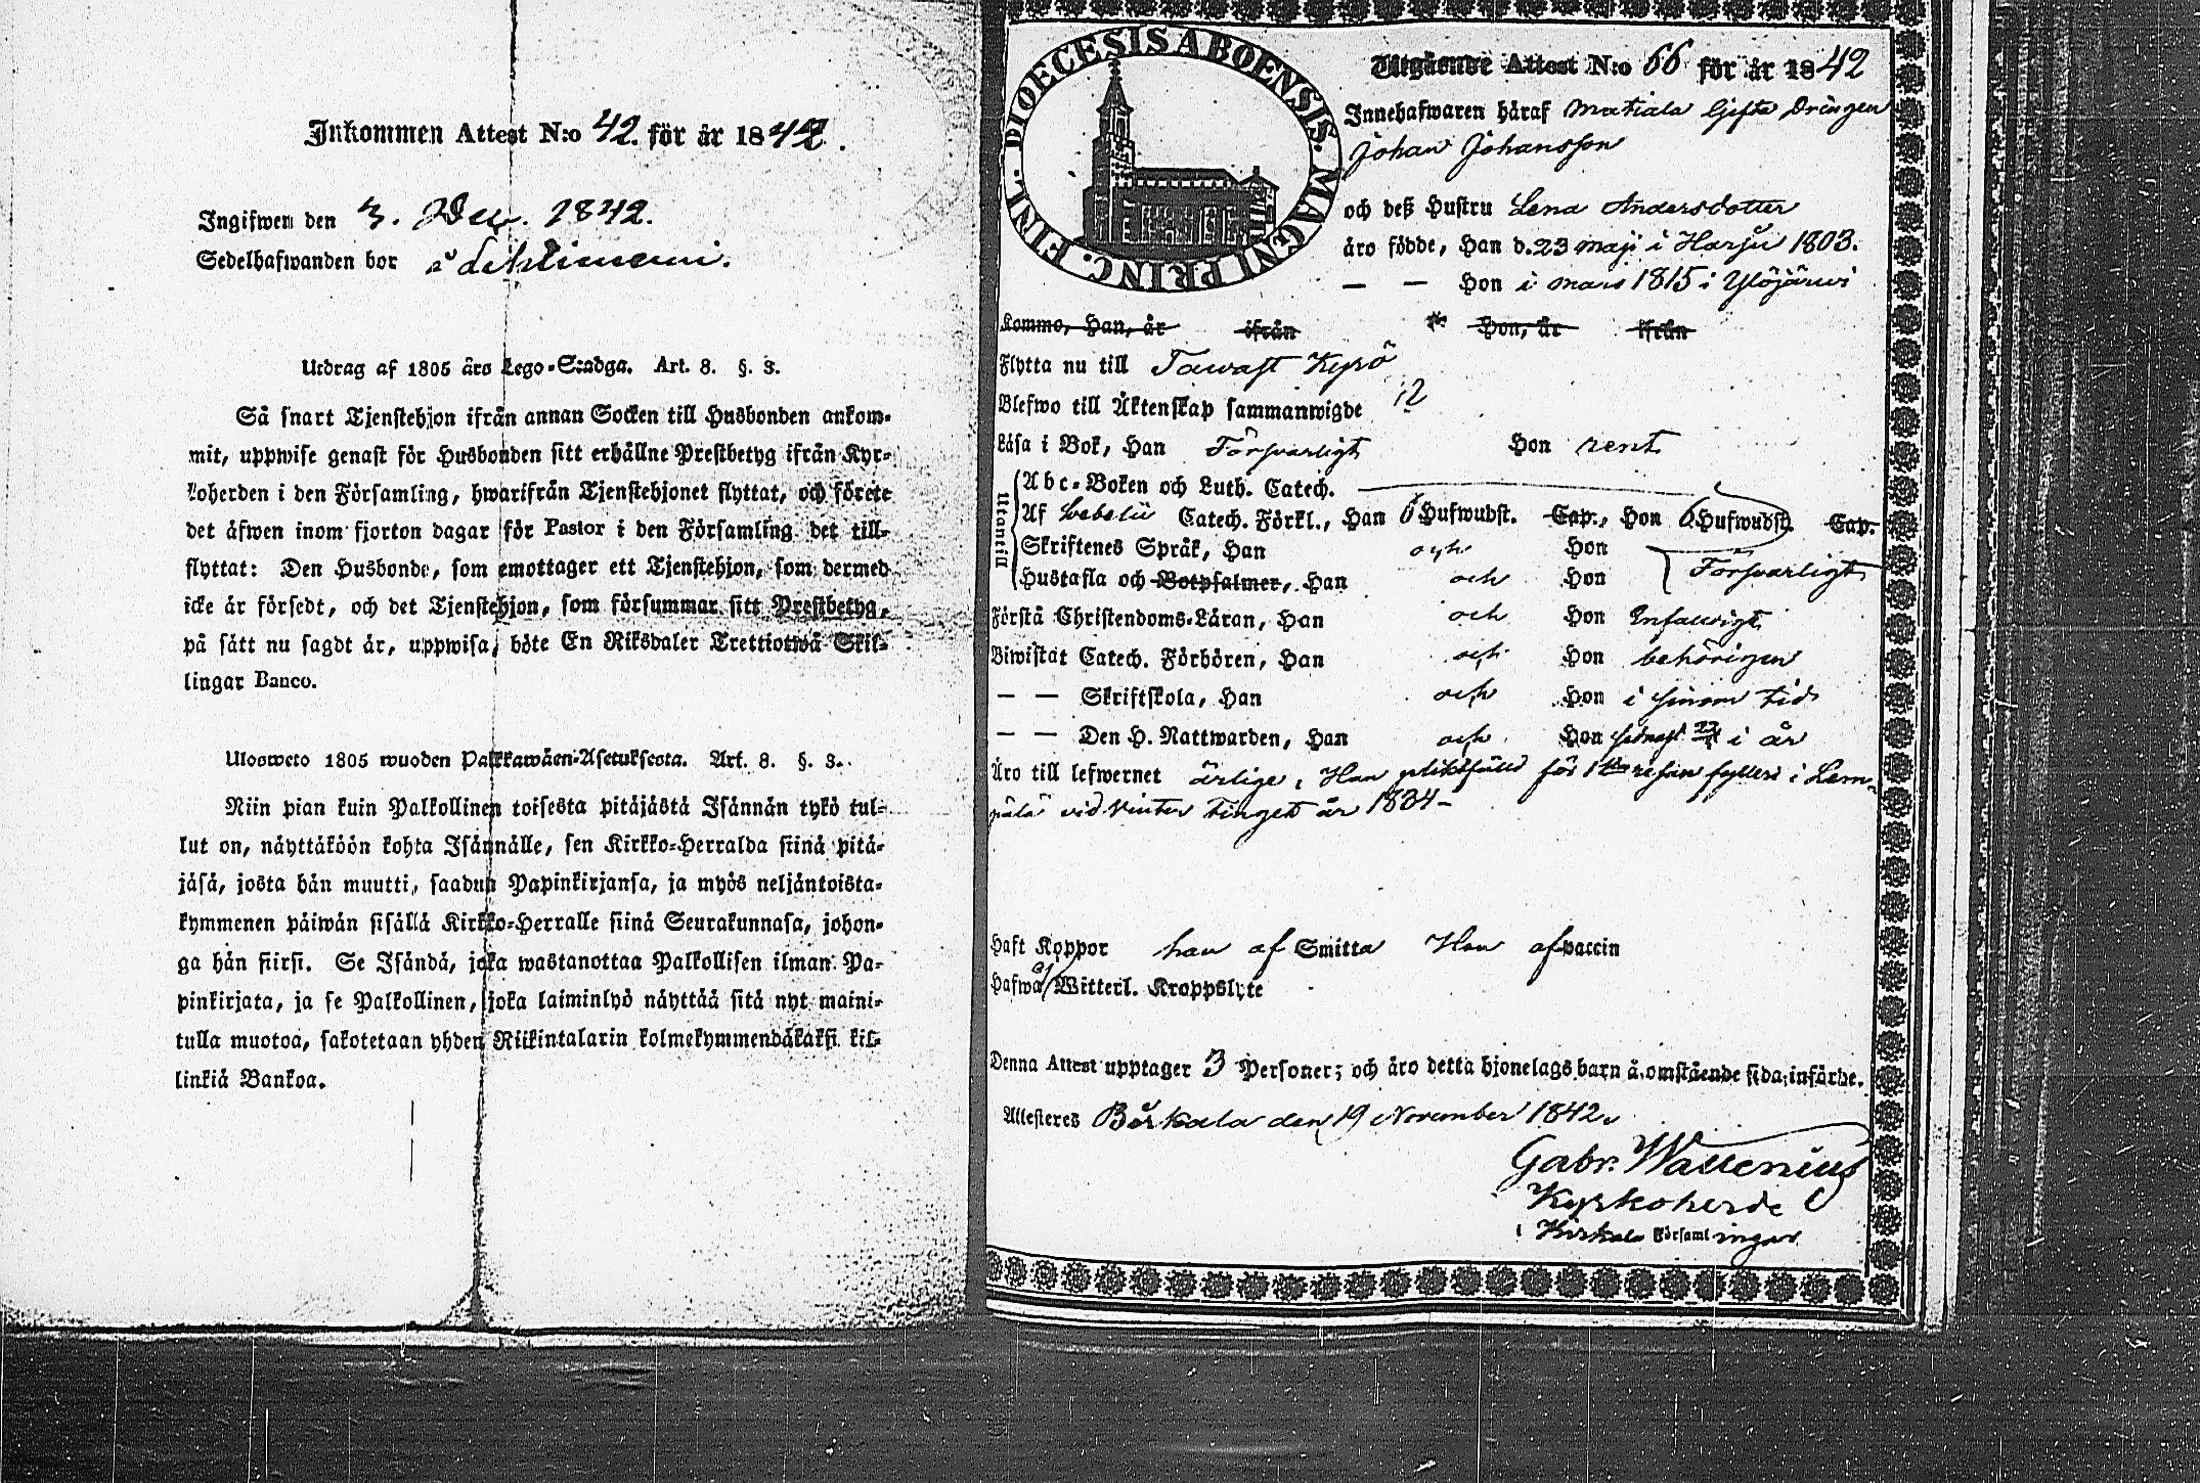 Inkommen Attest N:o 42. för år 1842.
Ingifwen den 3. Dec. 1842.
Sedelhafwanden bor å Lehtiniemi.
Utdrag af 1805 års Lego-Stadga. Art. 8. §. 3.
Så snart Tjenstehjon ifrån annan Socken till Husbonden ankom-
mit, uppwise genast för Husbonden sitt erhållne Prestbetyg ifrån Kyr-
koherden i den Församling, hwarifrån Tjenstehjonet flyttat, och förete
det äfwen inom fjorton dagar för Pastor i den Församling det till-
flyttat: Den Husbonde, som emottager ett Tjenstehjon, som dermed
icke är försedt, och det Tjenstehjon, som försummar sitt Prestbetyg,
på sätt nu sagdt är, uppwisa, böte En Riksdaler Trettiotwå Skil-
lingar Banco.
Ulosweto 1805 wuoden Palkkawäen-Asetuksesta. Art. 8. §. 3.
Niin pian kuin Palkollinen toisesta pitäjästä Isännän tykö tul-
lut on, näyttäköön kohta Isännälle, sen Kirkko-Herralda siinä pitä-
jäsä, josta hän muutti, saadun Papinkirjansa, ja myös neljäntoista-
kymmenen päiwän sisällä Kirkko-Herralle siinä Seurakunnasa, johon-
ga hän siirsi. Se Isändä, joka wastanottaa Palkollisen ilman Pa-
pinkirjata, ja se Palkollinen, joka laiminlyö näyttää sitä nyt maini-
tulla muotoa, sakotetaan yhden Riikintalarin kolmekymmendäkaksi kil-
linkiä Bankoa.
DIOECESIS ABOENSIS. MAGNI PRINC. FINL.
Utgående Attest N:o 66 för år 1842
Innehafwaren häraf Matiala Gifta Drängen
Johan Johansson
och deß Hustru Lena Andersdotter
äro födde, Han d. 23 maji i Harju 1803.
— — Hon i mars 1815 i Ylöjärwi
Komme, Han, år ifrån Hon, år ifrån
Flytta nu till Tawast Kyrö
Blefwo till Äktenskap sammanwigde
Läsa i Bok, Han Försvarligt Hon rent
Utantill
Abc-Boken och Luth. Catech.
Af Catech. Förkl., Han 6 Hufwudst. Cap., Hon 6 Hufwudst. Cap.
Skriftenes Språk, Han och Hon
Hustafla och Botpsalmer, Han och Hon Försvarligt
Förstå Christendoms-Läran, Han och Hon Enfaldigt
Biwistat Catech. Förhören, Han och Hon behörigen
— — Skriftskola, Han och Hon i sinom tid
— — Den H. Nattwarden, Han och Hon sednast i år
Äro till lefwernet ärlige, Han pliktfälld för 1sta resan fylleri i Lem-
pälä vid Vinter tinget år 1834 –
Haft Koppor han af Smitta Hon af vaccin
Hafwa ej Witterl. Kroppslyte
Denna Attest upptager 3 Personer; och äro detta hjonelags barn å omstående sida införde.
Attesteres Birkala den 19 November 1842.
Gabr. Wallenius
Kyrkoherde
i Birkala Församlingar